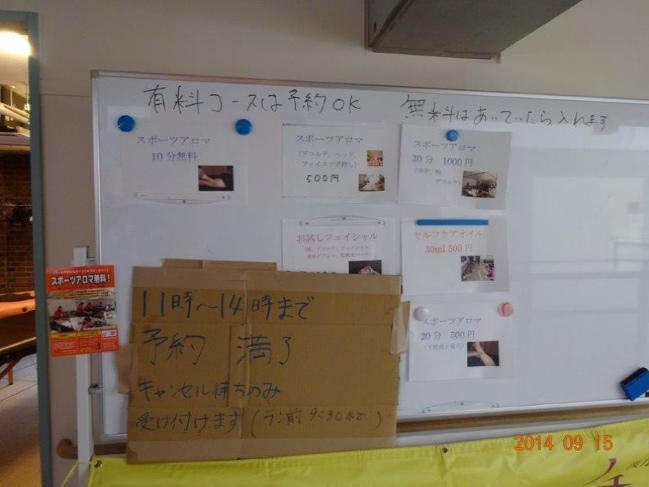 有料コースは予約OK
無料はあいていたら入れます
スポーツアロマ
10分無料
スポーツアロマ
500円
スポーツアロマ
20分 1000円
お試しフェイシャル
セルフケアオイル
30ml 500円
スポーツアロマ
20分 500円
スポーツアロマ無料！
11時〜14時まで
予約 満了
キャンセル待ちのみ
受け付けます
2014 09 15